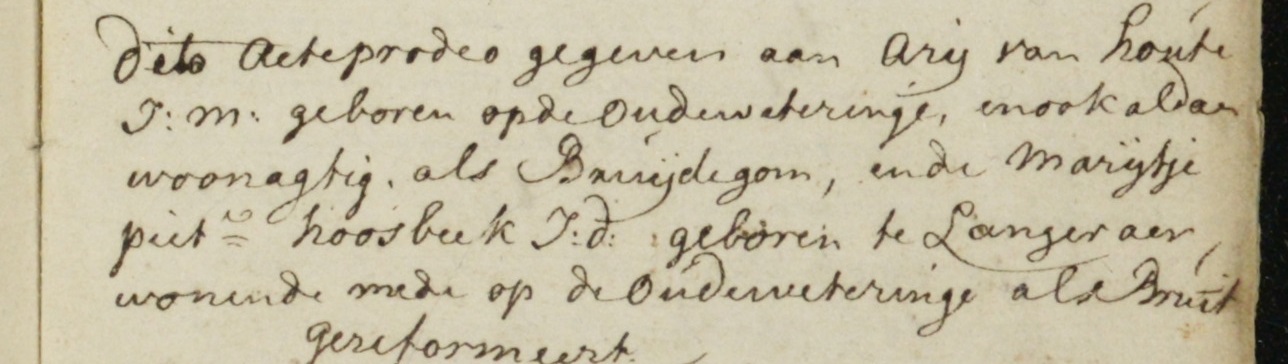 dito Acte prodeo gegeven aan Arij van houte
J: m: geboren op de Oudeweteringe, en ook aldaer
woonagtig. als Bruijdegom, ende Marijtje
piet= hoosbeek J: d: geboren te Langeraer,
wonende mede op de Oudeweteringe als Bruit
gereformeert.